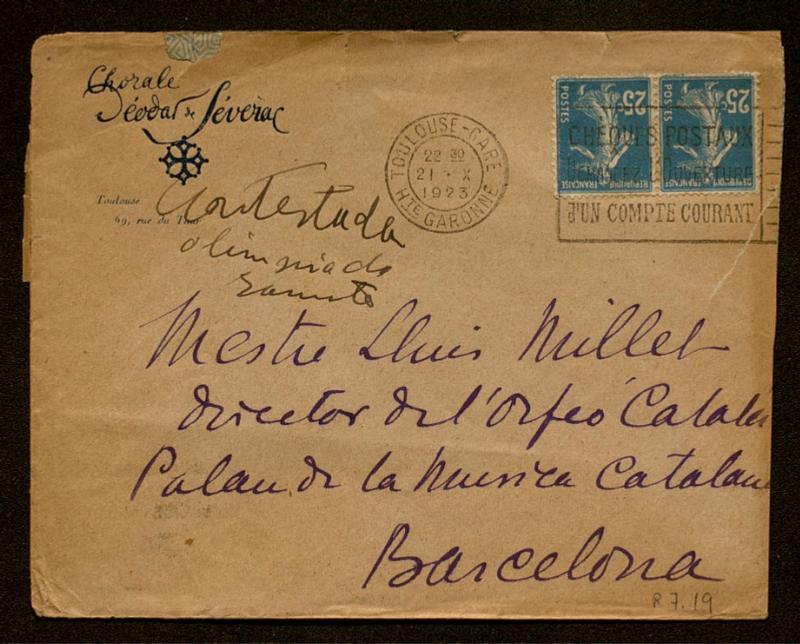 Chorale
Déodat de Séverac
Toulouse
69, rue du
TOULOUSE-GARE
22 30
21 · X
1923
HTE GARONNE
25c 25c
POSTES POSTES
REPUBLIQUE FRANÇAISE
CHEQUES POSTAUX
DEMANDEZ L'OUVERTURE
d'UN COMPTE COURANT
Contestada
Mestre Lluis Millet
director de l'Orfeó Català
Palau de la Musica Catalana
Barcelona
R 7.19